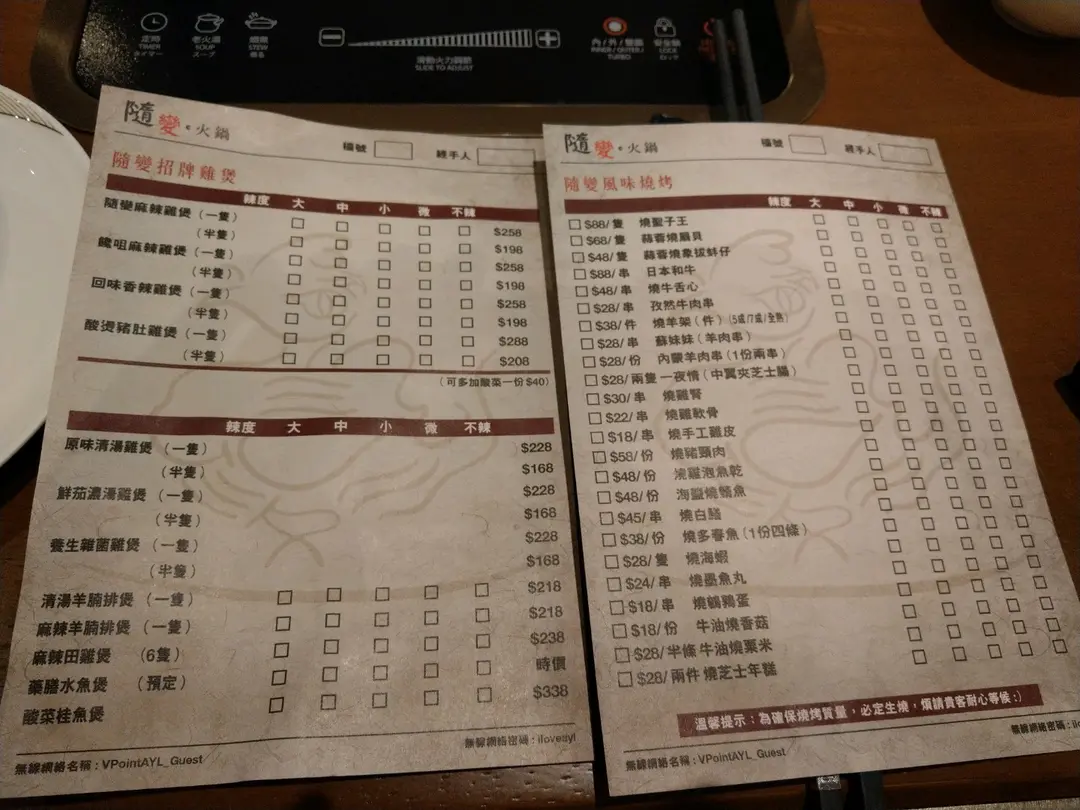 定時
TIMER
タイマー
老火湯
SOUP
スープ
STEW
煮る
滑動火力調節
SLIDE TO ADJUST
內/外/雙圈
INNER/OUTER/
TURBO
安全鎖
LOCK
ロック
隨變。火鍋
編號
經手人
隨變招牌雞煲
辣度 大 中 小 微 不辣
隨變麻辣雞煲（一隻） $258
（半隻） $198
饞咀麻辣雞煲（一隻） $258
（半隻） $198
回味香辣雞煲（一隻） $258
（半隻） $198
酸燙豬肚雞煲（一隻） $288
（半隻） $208
（可多加酸菜一份$40）
辣度 大 中 小 微 不辣
原味清湯雞煲（一隻） $228
（半隻） $168
鮮茄濃湯雞煲（一隻） $228
（半隻） $168
養生雜菌雞煲（一隻） $228
（半隻） $168
清湯羊腩排煲（一隻） $218
麻辣羊腩排煲（一隻） $218
麻辣田雞煲（6隻） $238
藥膳水魚煲（預定） 時價
酸菜桂魚煲 $338
無線網絡名稱：VPointAYL_Guest
無線網絡密碼：iloveayl
隨變。火鍋
編號
經手人
隨變風味燒烤
辣度 大 中 小 微 不辣
$88/隻 燒聖子王
$68/隻 蒜蓉燒扇貝
$48/隻 蒜蓉燒象拔蚌仔
$88/串 日本和牛
$48/串 燒牛舌心
$28/串 孜然牛肉串
$38/件 燒羊架（件）（5成/7成/全熟）
$28/串 蘇妹妹（羊肉串）
$28/份 內蒙羊肉串（1份兩串）
$28/兩隻 一夜情（中翼夾芝士腸）
$30/串 燒雞腎
$22/串 燒雞軟骨
$18/串 燒手工雞皮
$58/份 燒豬頸肉
$48/份 燒雞泡魚乾
$48/份 海鹽燒鯖魚
$45/串 燒白鱔
$38/份 燒多春魚（1份四條）
$28/隻 燒海蝦
$24/串 燒墨魚丸
$18/串 燒鵪鶉蛋
$18/份 牛油燒香菇
$28/半條 牛油燒粟米
$28/兩件 燒芝士年糕
溫馨提示：為確保燒烤質量，必定生燒，煩請貴客耐心等候:)
無線網絡名稱：VPointAYL_Guest
無線網絡密碼：